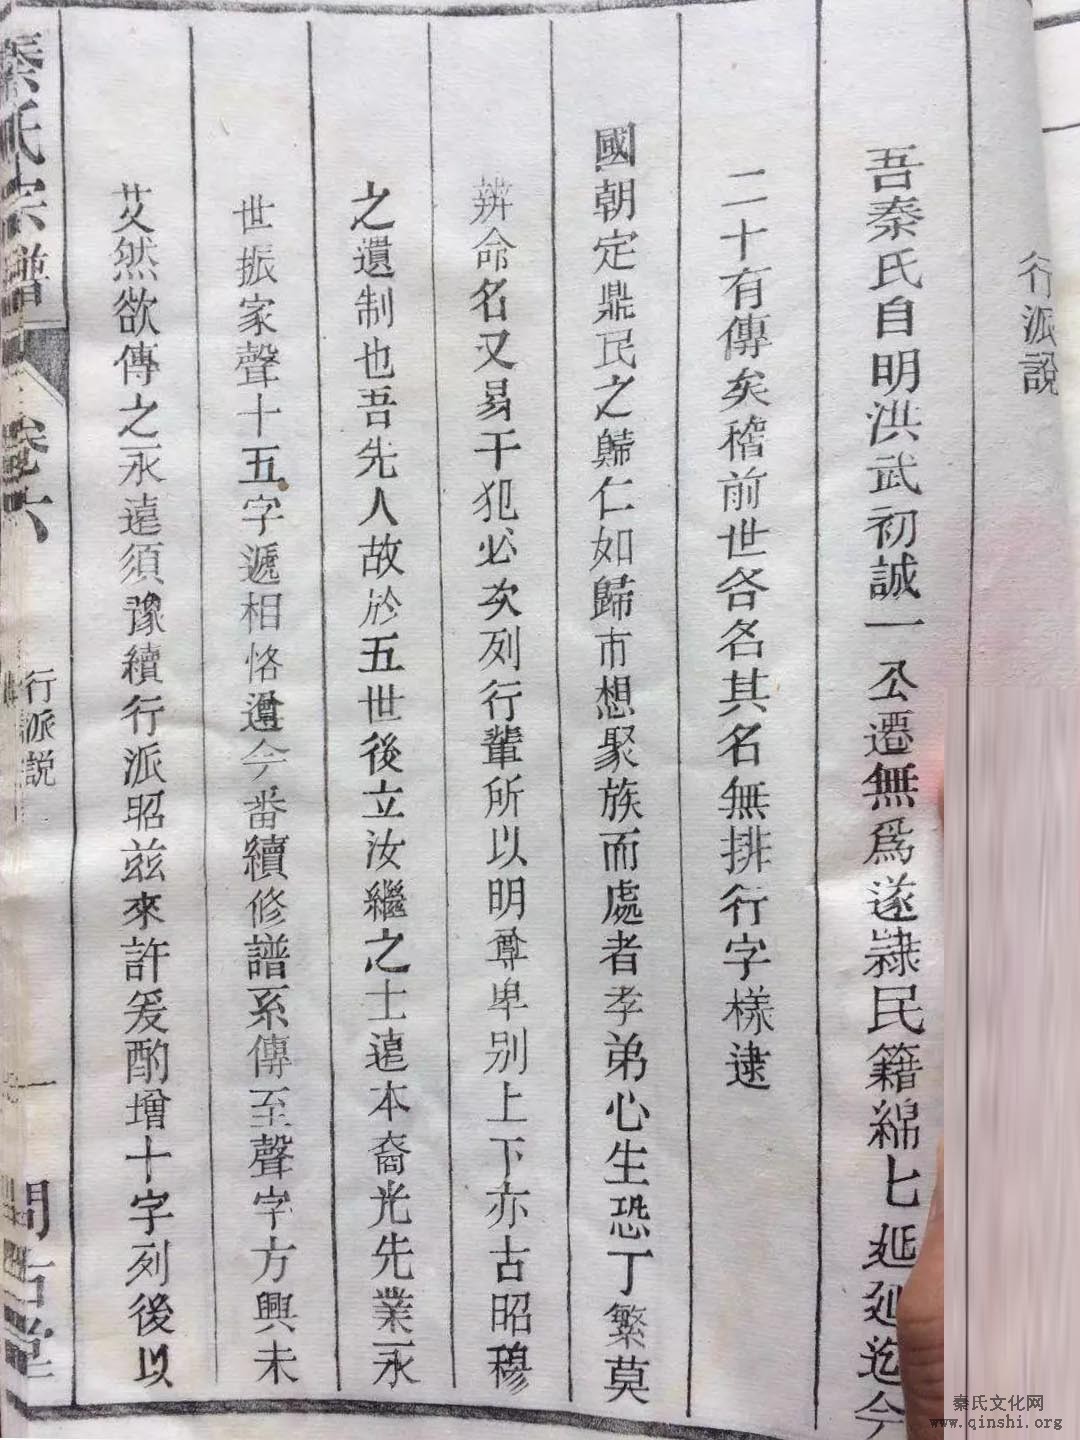 行派說
吾秦氏自明洪武初誠一公遷無爲遂隸民籍綿匕延延迄今
二十有傳矣稽前世各名其名無排行字樣逮
國朝定鼎民之歸仁如歸市想聚族而處者孝弟心生恐丁繁莫
辨命名又易干犯必次列行輩所以明尊卑别上下亦古昭穆
之遺制也吾先人故於五世後立汝繼之士遠本裔光先業永
世振家聲十五字遞相恪遵今番續修譜系傳至聲字方興未
艾然欲傳之永遠須豫續行派昭兹來許爰酌增十字列後以
秦氏宗譜
卷六
行派説
一
問古堂
秦氏文化网
www.qinshi.org